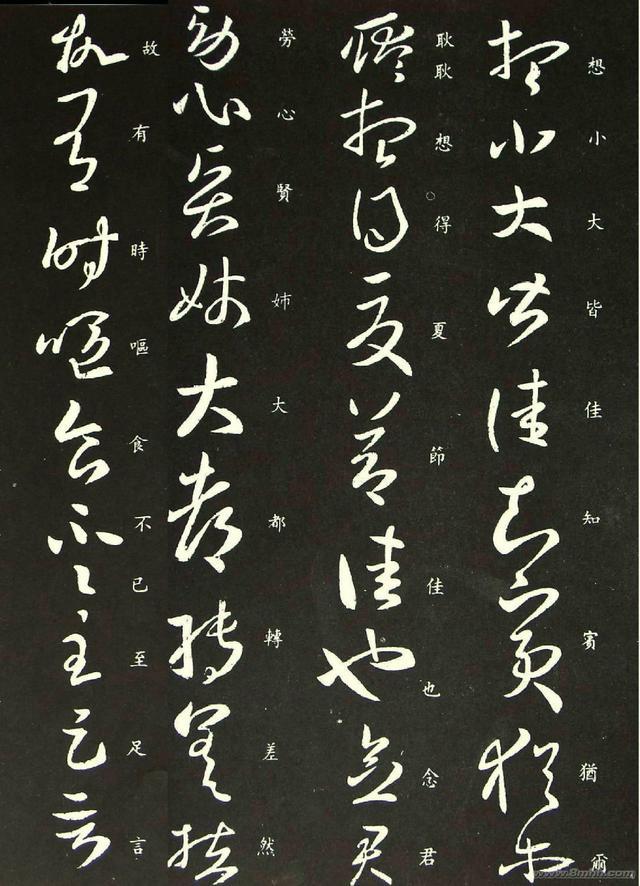 想小大皆佳知賓猶爾
耿耿想得夏節佳也念君
勞心賢姉大都轉差然
故有時嘔食不已至足言